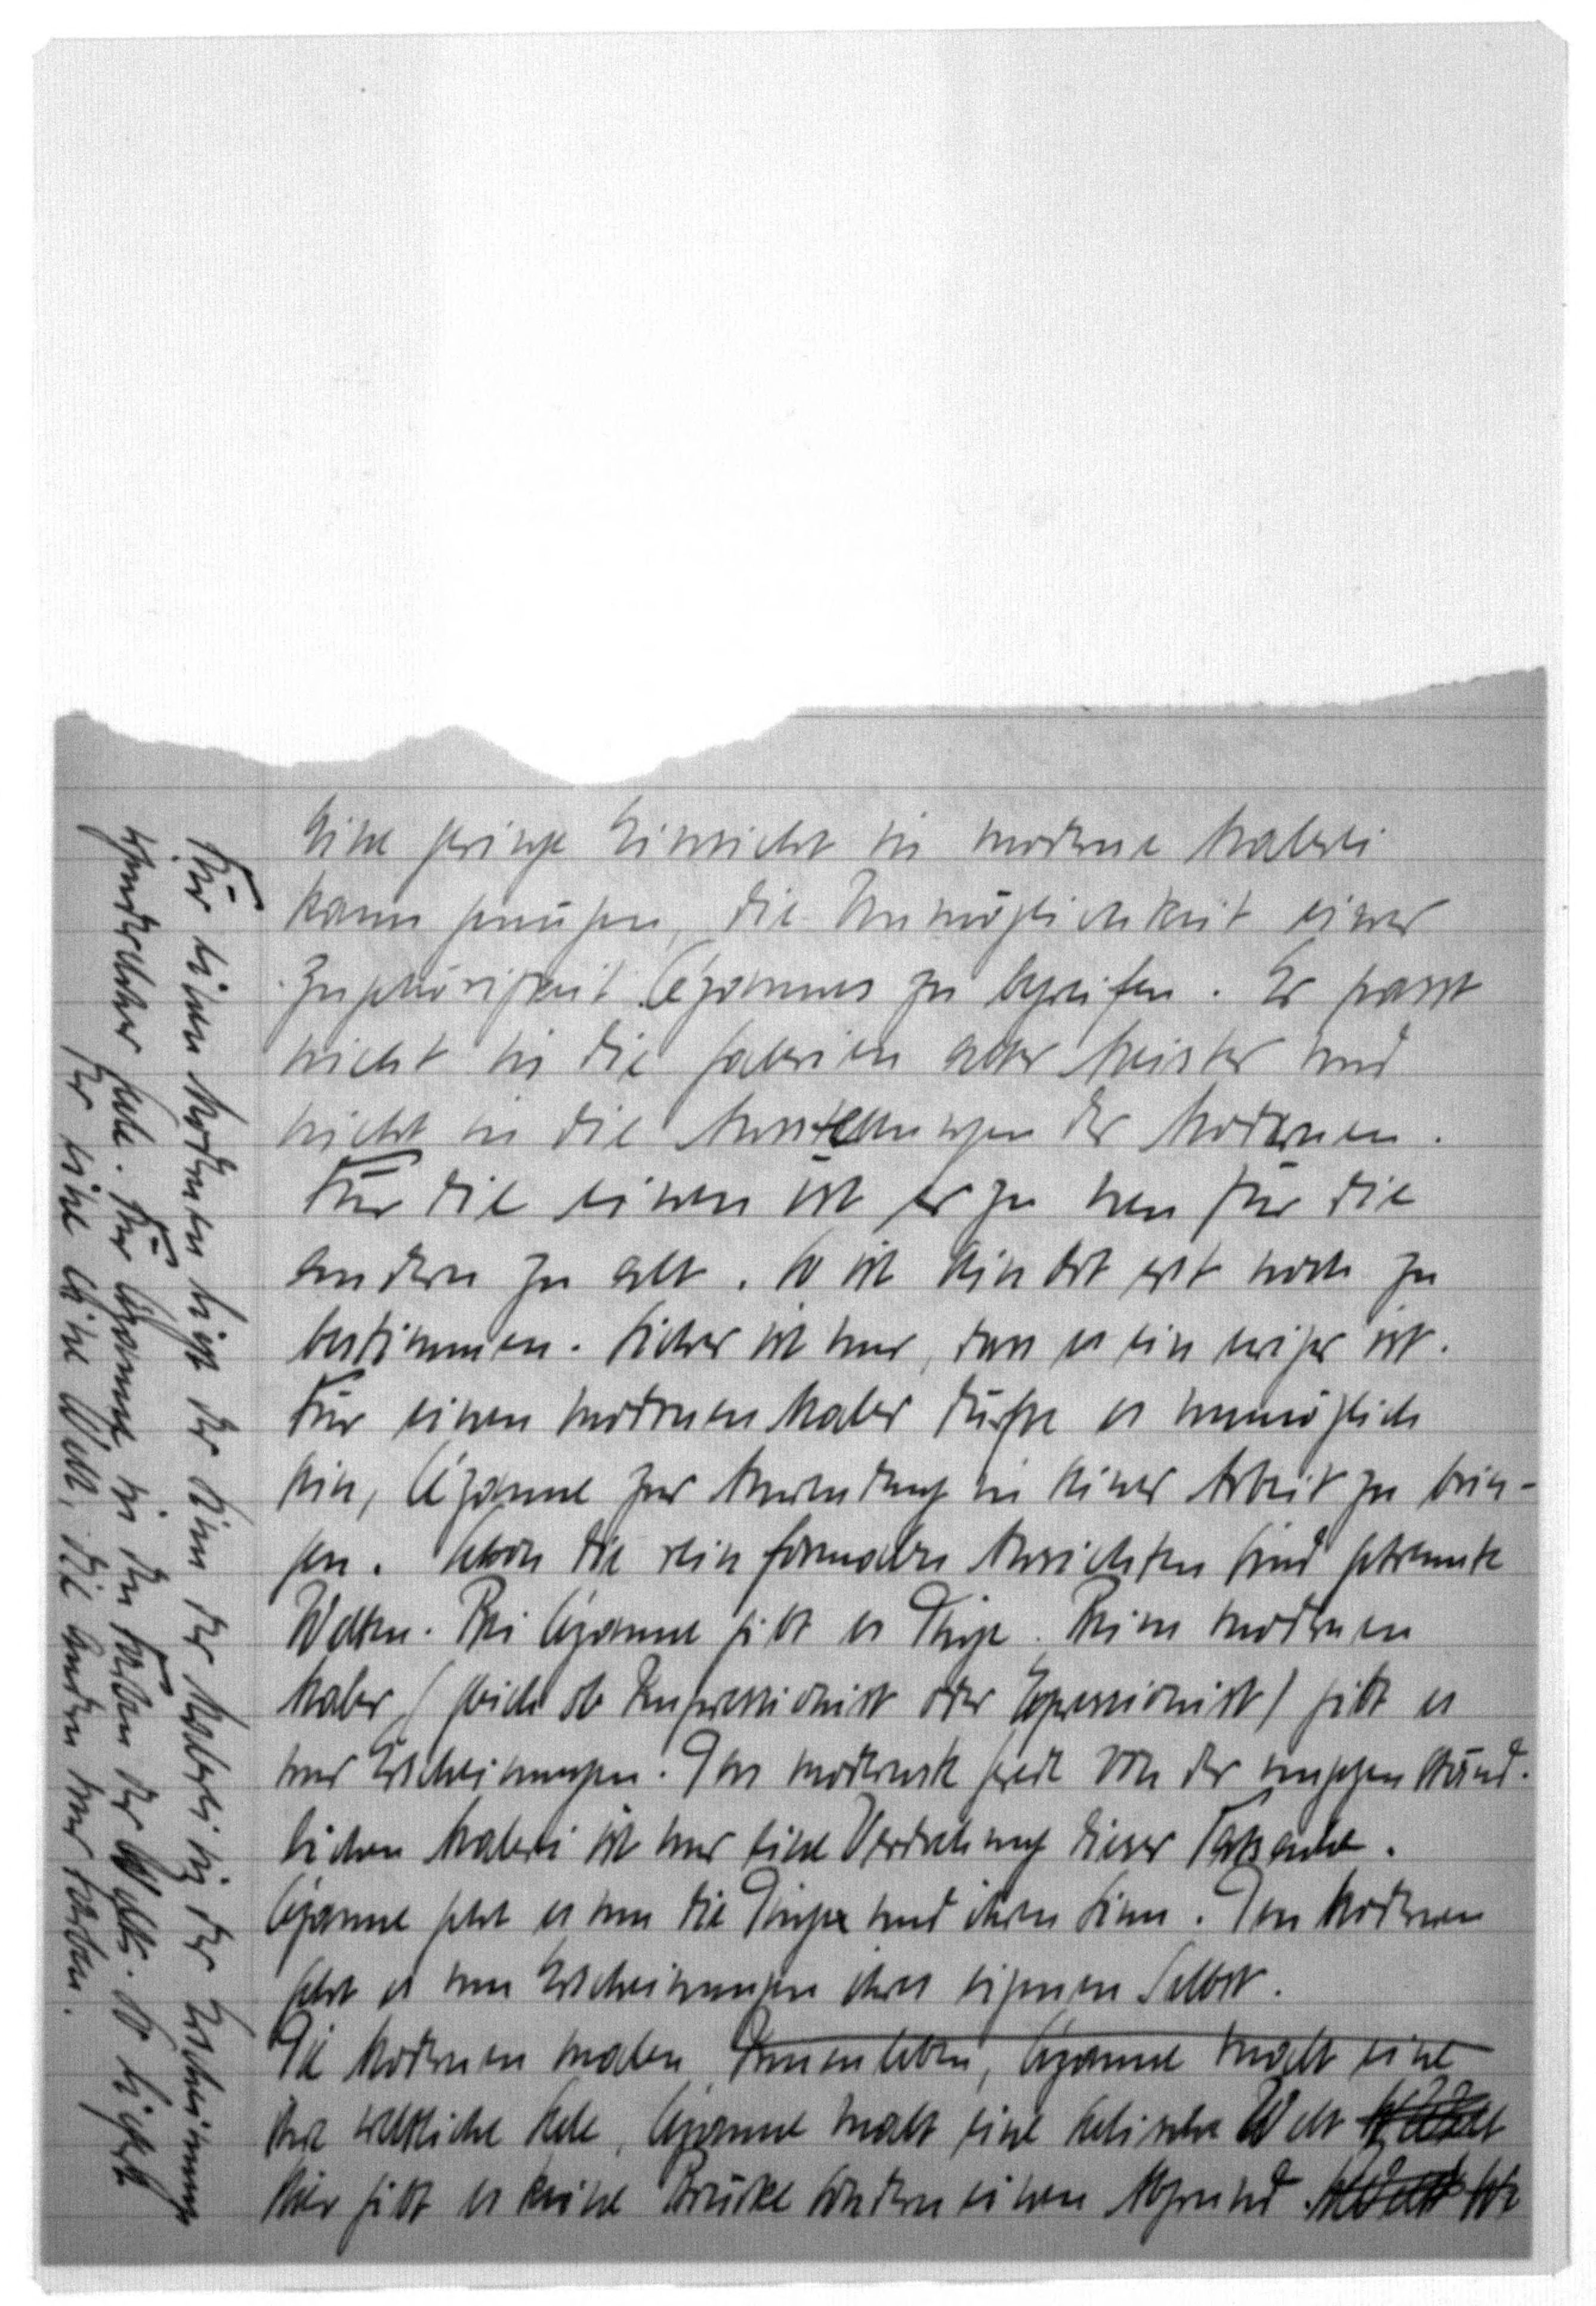 Eine geringe Einsicht in moderne Malerei
kann genügen, die Unmöglichkeit einer
Zugehörigkeit Cézannes zu begreifen. Er passt
nicht in die Galerien alter Meister und
nicht in die Ausstellungen der Modernen.
Für die einen ist er zu neu für die
andern zu alt. So ist sein Ort erst noch zu
bestimmen. Sicher ist nur, dass es ein ewiger ist.
Für einen modernen Maler dürfte es unmöglich
sein, Cézanne zur Anwendung in seiner Arbeit zu brin-
gen. Schon die rein formalen Ansichten sind getrennte
Welten. Bei Cézanne gibt es Dinge. Beim modernen
Maler (gleich ob Impressionist oder Expressionist) gibt es
nur Erscheinungen. Das modernste Gerede von der ungegenständ-
lichen Malerei ist nur eine Verdrehung dieser Tatsache.
Cézanne geht es um die Dinge und ihren Sinn. Den Modernen
geht es um Erscheinungen ihres eigenen Selbst.
Die Modernen malen Innenleben, Cézanne malt eine
ihre weltliche Seele, Cézanne malt eine seelische Welt
Hier gibt es keine Brücke sondern einen Abgrund
Für einen Modernen liegt der Sinn der Malerei in der Erscheinung
Seele. Für Cézanne in den Farben der Welt. So sieht
der eine eine Welt, die andern nur Farben.